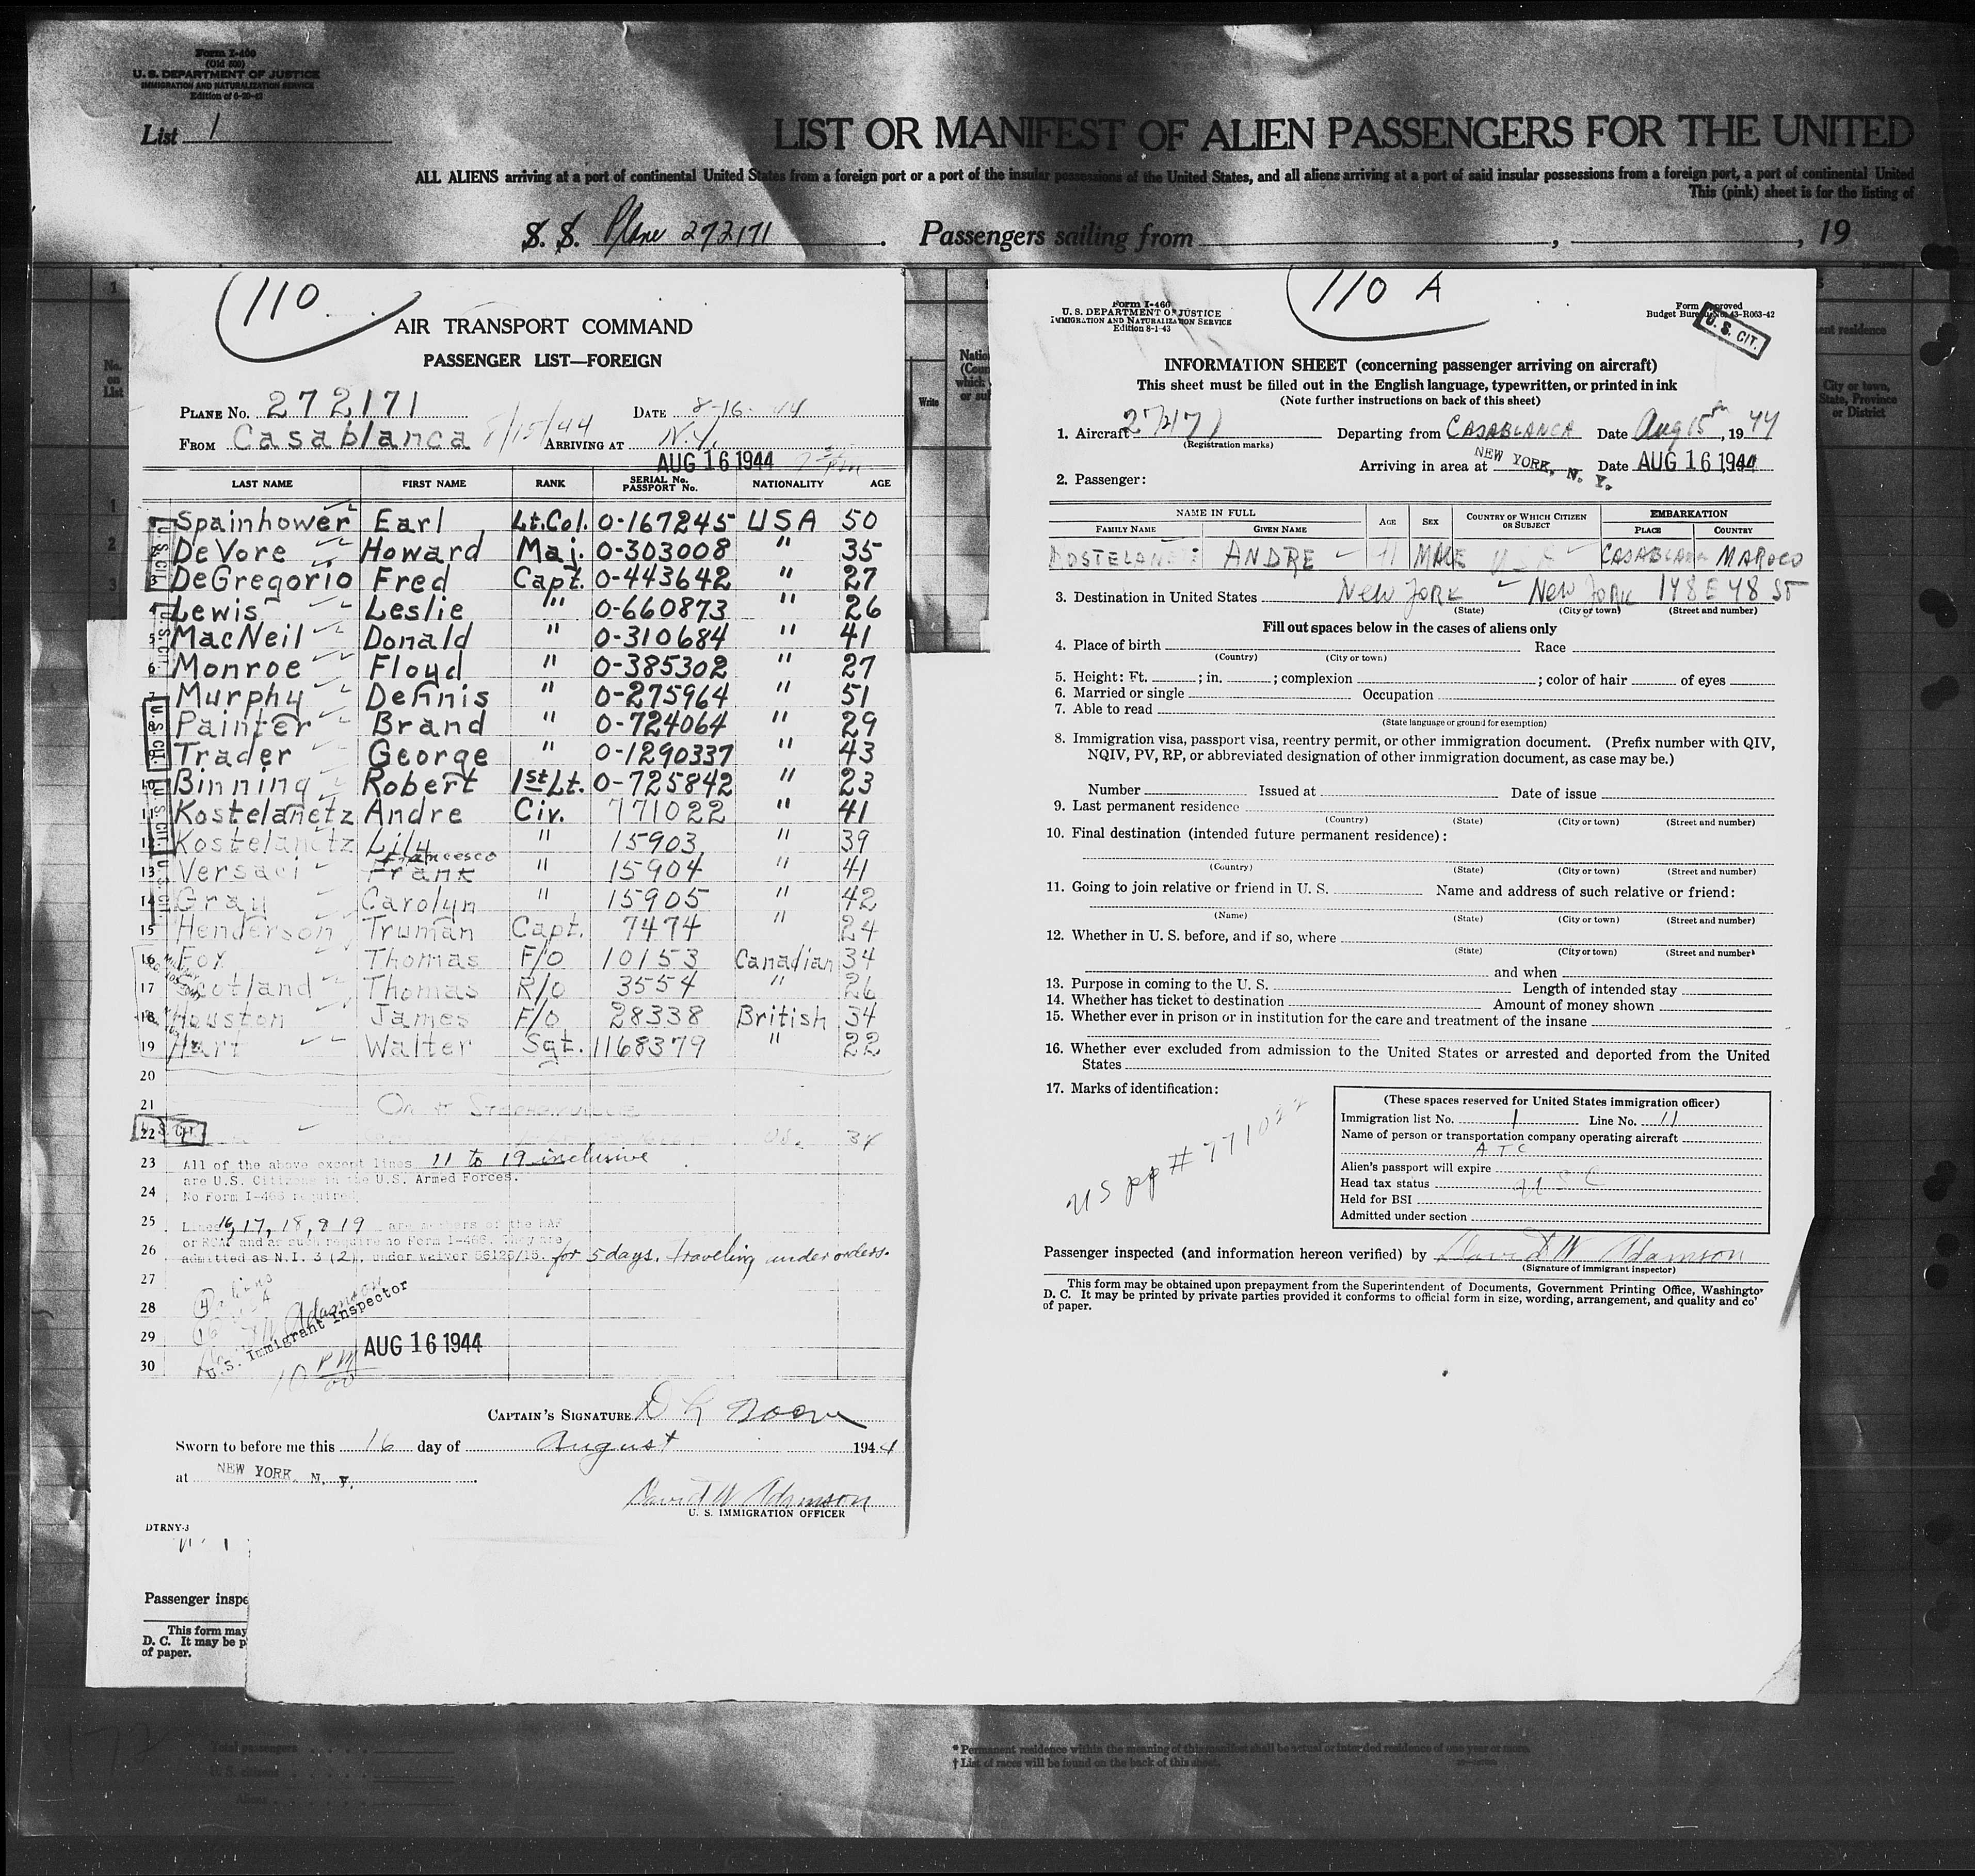 Form I-460
(Old 500)
U. S. DEPARTMENT OF JUSTICE
IMMIGRATION AND NATURALIZATION SERVICE
List 1
LIST OR MANIFEST OF ALIEN PASSENGERS FOR THE UNITED
ALL ALIENS arriving at a port of continental United States from a foreign port or a port of the insular possessions of the United States, and all aliens arriving at a port of said insular possessions from a foreign port, a port of continental United
This (pink) sheet is for the listing of
S. S. Plane 272171 . Passengers sailing from , , 19
110
AIR TRANSPORT COMMAND
PASSENGER LIST—FOREIGN
PLANE No. 272171 DATE 8-16-44
FROM Casablanca 8/15/44 ARRIVING AT N.Y.
AUG 16 1944
LAST NAME FIRST NAME RANK SERIAL No. PASSPORT No. NATIONALITY AGE
1 Spainhower Earl Lt.Col. 0-167245 USA 50
2 DeVore Howard Maj. 0-303008 " 35
3 DeGregorio Fred Capt. 0-443642 " 27
4 Lewis Leslie " 0-660873 " 26
5 MacNeil Donald " 0-310684 " 41
6 Monroe Floyd " 0-385302 " 27
7 Murphy Dennis " 0-275964 " 51
8 Painter Brand " 0-724064 " 29
9 Trader George " 0-1290337 " 43
10 Binning Robert 1st Lt. 0-725842 " 23
11 Kostelanetz Andre Civ. 771022 " 41
12 Kostelanetz Lily " 15903 " 39
13 Versaci Francesco Frank " 15904 " 41
14 Gray Carolyn " 15905 " 42
15 Henderson Truman Capt. 7474 " 24
16 Fox Thomas F/O 10153 Canadian 34
17 Scotland Thomas R/O 3554 " 26
18 Houston James F/O 28338 British 34
19 Hart Walter Sgt. 1168379 " 22
20
21
22 U. S. CIT. 34
23 All of the above except lines 11 to 19 inclusive
are U.S. Citizens in the U.S. Armed Forces.
24 No Form I-466 required
25 Lines 16, 17, 18, & 19 are members of the RAF
or RCAF and as such require no Form I-466. They are
26 admitted as N.I. 3 (2), under waiver 56125/15. for 5 days. Traveling under orders.
27
28
29 U.S. Immigrant Inspector AUG 16 1944
30 10 PM
CAPTAIN'S SIGNATURE
Sworn to before me this 16 day of August 1944
at NEW YORK, N. Y.
David W Adamson
U. S. IMMIGRATION OFFICER
DTRNY-3
Passenger inspe
This form may
D. C. It may be p
of paper.
110 A
Form I-466
U. S. DEPARTMENT OF JUSTICE
IMMIGRATION AND NATURALIZATION SERVICE
Edition 8-1-43
Form Approved
Budget Bureau No. 43-R063-42
U. S. CIT.
INFORMATION SHEET (concerning passenger arriving on aircraft)
This sheet must be filled out in the English language, typewritten, or printed in ink
(Note further instructions on back of this sheet)
1. Aircraft 272171 Departing from CASABLANCA Date Aug 15th, 1944
(Registration marks)
Arriving in area at NEW YORK, N. Y. Date AUG 16 1944
2. Passenger:
NAME IN FULL AGE SEX COUNTRY OF WHICH CITIZEN OR SUBJECT EMBARKATION
FAMILY NAME GIVEN NAME PLACE COUNTRY
ANDRE MALE CASABLANCA MAROCO
3. Destination in United States New York New York 148 E 48 ST
(State) (City or town) (Street and number)
Fill out spaces below in the cases of aliens only
4. Place of birth Race
(Country) (City or town)
5. Height: Ft. ; in. ; complexion ; color of hair of eyes
6. Married or single Occupation
7. Able to read
(State language or ground for exemption)
8. Immigration visa, passport visa, reentry permit, or other immigration document. (Prefix number with QIV,
NQIV, PV, RP, or abbreviated designation of other immigration document, as case may be.)
Number Issued at Date of issue
9. Last permanent residence
(Country) (State) (City or town) (Street and number)
10. Final destination (intended future permanent residence):
(Country) (State) (City or town) (Street and number)
11. Going to join relative or friend in U. S. Name and address of such relative or friend:
(Name) (State) (City or town) (Street and number)
12. Whether in U. S. before, and if so, where
(State) (City or town) (Street and number)
and when
13. Purpose in coming to the U. S. Length of intended stay
14. Whether has ticket to destination Amount of money shown
15. Whether ever in prison or in institution for the care and treatment of the insane
16. Whether ever excluded from admission to the United States or arrested and deported from the United
States
17. Marks of identification:
US pp # 771022
(These spaces reserved for United States immigration officer)
Immigration list No. 1 Line No. 11
Name of person or transportation company operating aircraft
ATC
Alien's passport will expire
Head tax status USC
Held for BSI
Admitted under section
Passenger inspected (and information hereon verified) by David W Adamson
(Signature of immigrant inspector)
This form may be obtained upon prepayment from the Superintendent of Documents, Government Printing Office, Washington
D. C. It may be printed by private parties provided it conforms to official form in size, wording, arrangement, and quality and co
of paper.
Total passengers
U. S. citizens
Aliens
* Permanent residence within the meaning of this manifest shall be actual or intended residence of one year or more.
† List of races will be found on the back of this sheet.